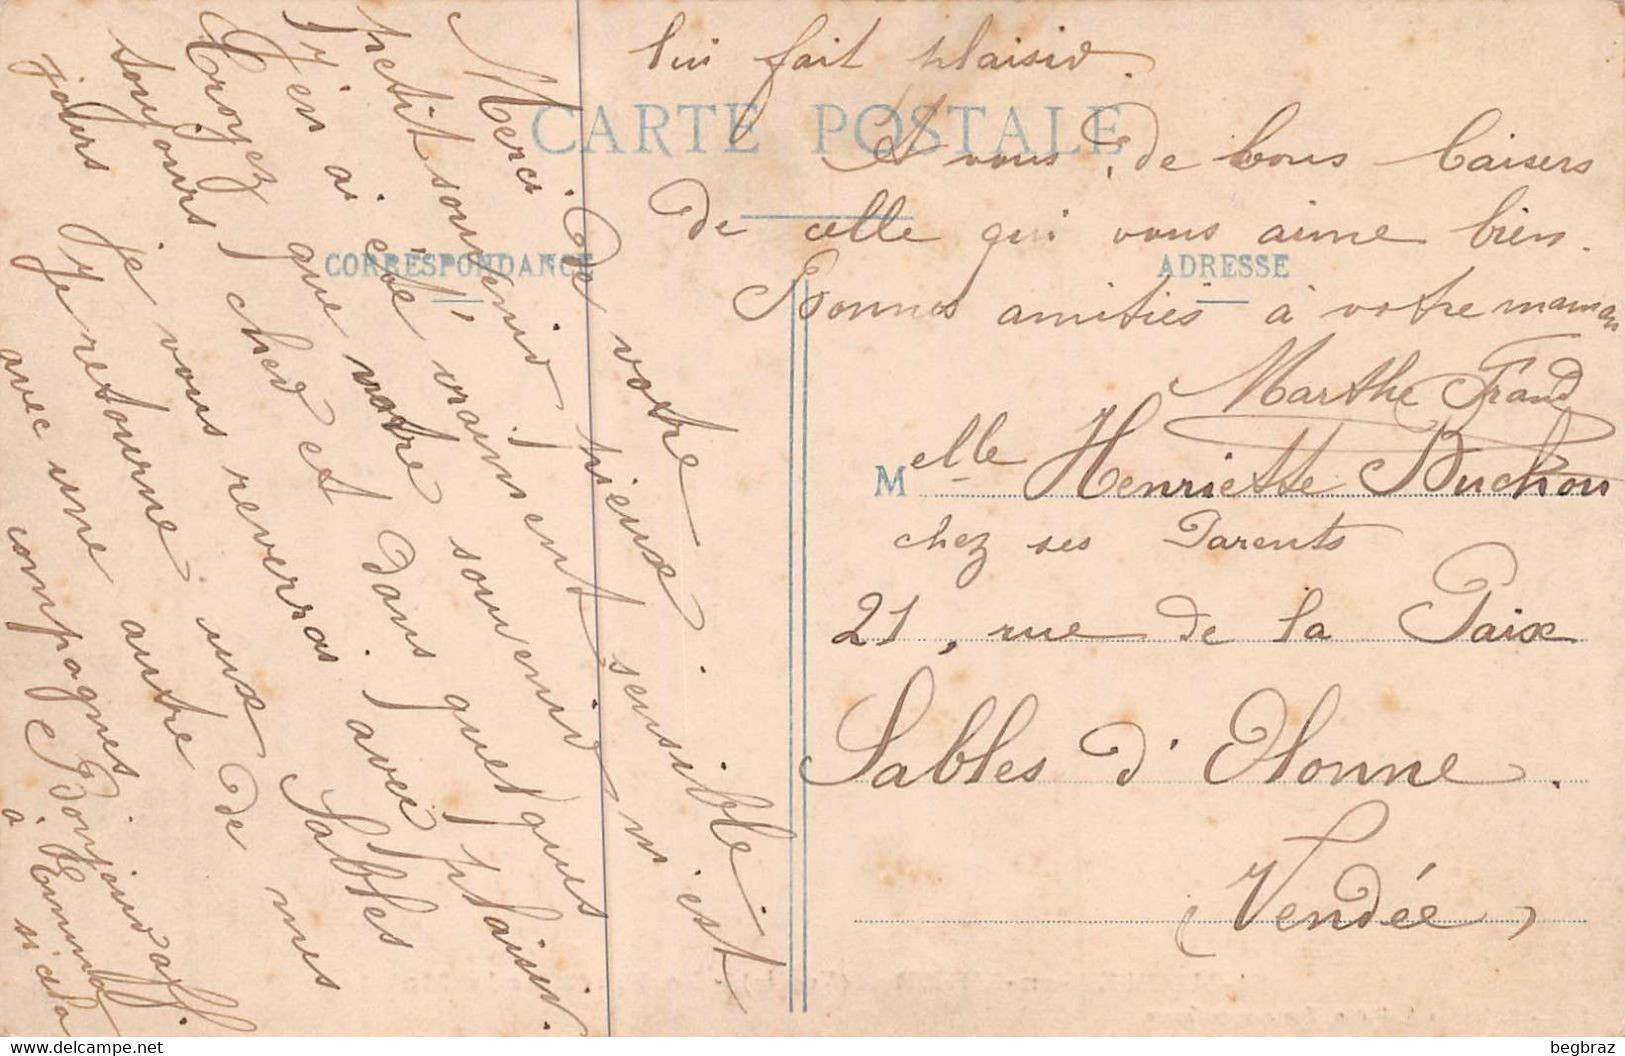 Merci de votre
petit souvenir
j'en ai été vraiment sensible
Croyez que votre souvenir m'est
toujours cher et dans quelques
jours je vous reverrai avec plaisir.
Je retourne aux Sables
avec une autre de mes
compagnes. Bonjour aff.
à si cela
lui fait plaisir.
CARTE POSTALE
A vous, de bons baisers
de celle qui vous aime bien.
CORRESPONDANCE
ADRESSE
Bonnes amitiés à votre maman
Marthe
Melle Henriette Buchou
chez ses Parents
21, rue de la Paix
Sables d'Olonne.
(Vendée)
begbraz